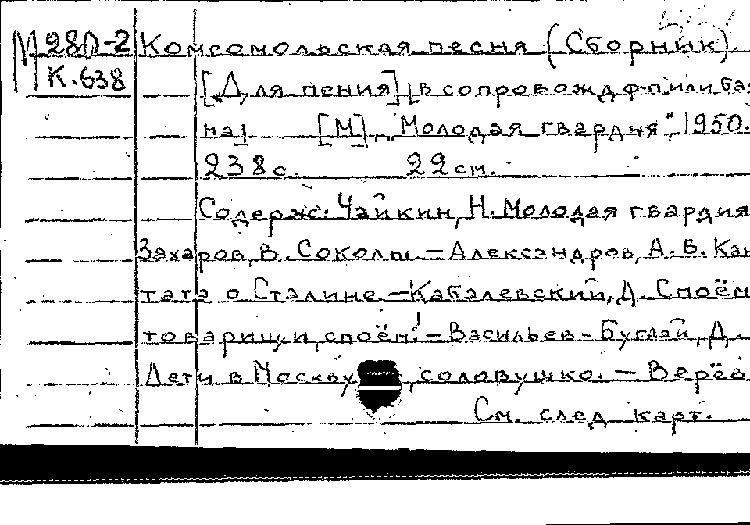 М 280-2 Комсомольская песня (Сборник).
К.638 [Для пения] в сопровожд ф-п или ба
на] [М], "Молодая гвардия", 1950.
238с. 22см.
Содерж: Чайкин, Н. Молодая гвардия
Захаров, В. Соколы. – Александров, А. В. Кан
тата о Сталине – Кабалевский, Д. Споём
товарищи, споём! – Васильев-Буглай, Д.
Лети в Москву, соловушко. – Верёв
См. след карт.